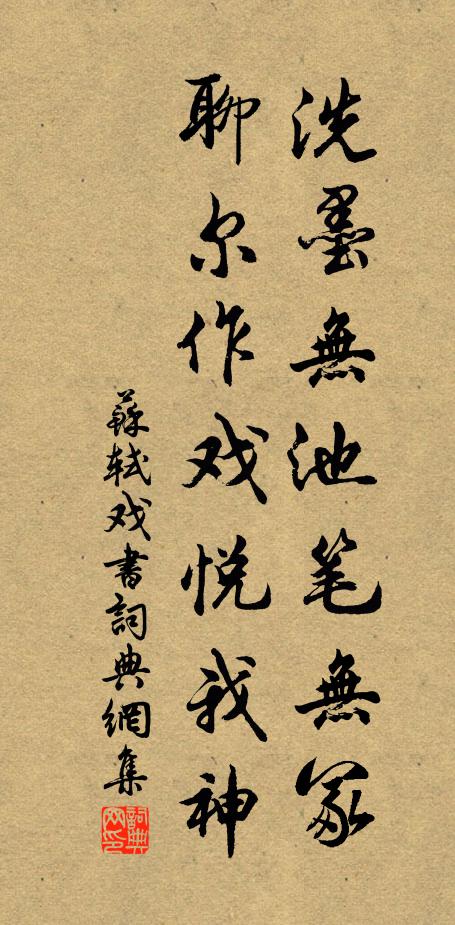 洗墨無池笔無冢
聊尔作戏悦我神
蘇軾戏書詞典網集
詞典網印